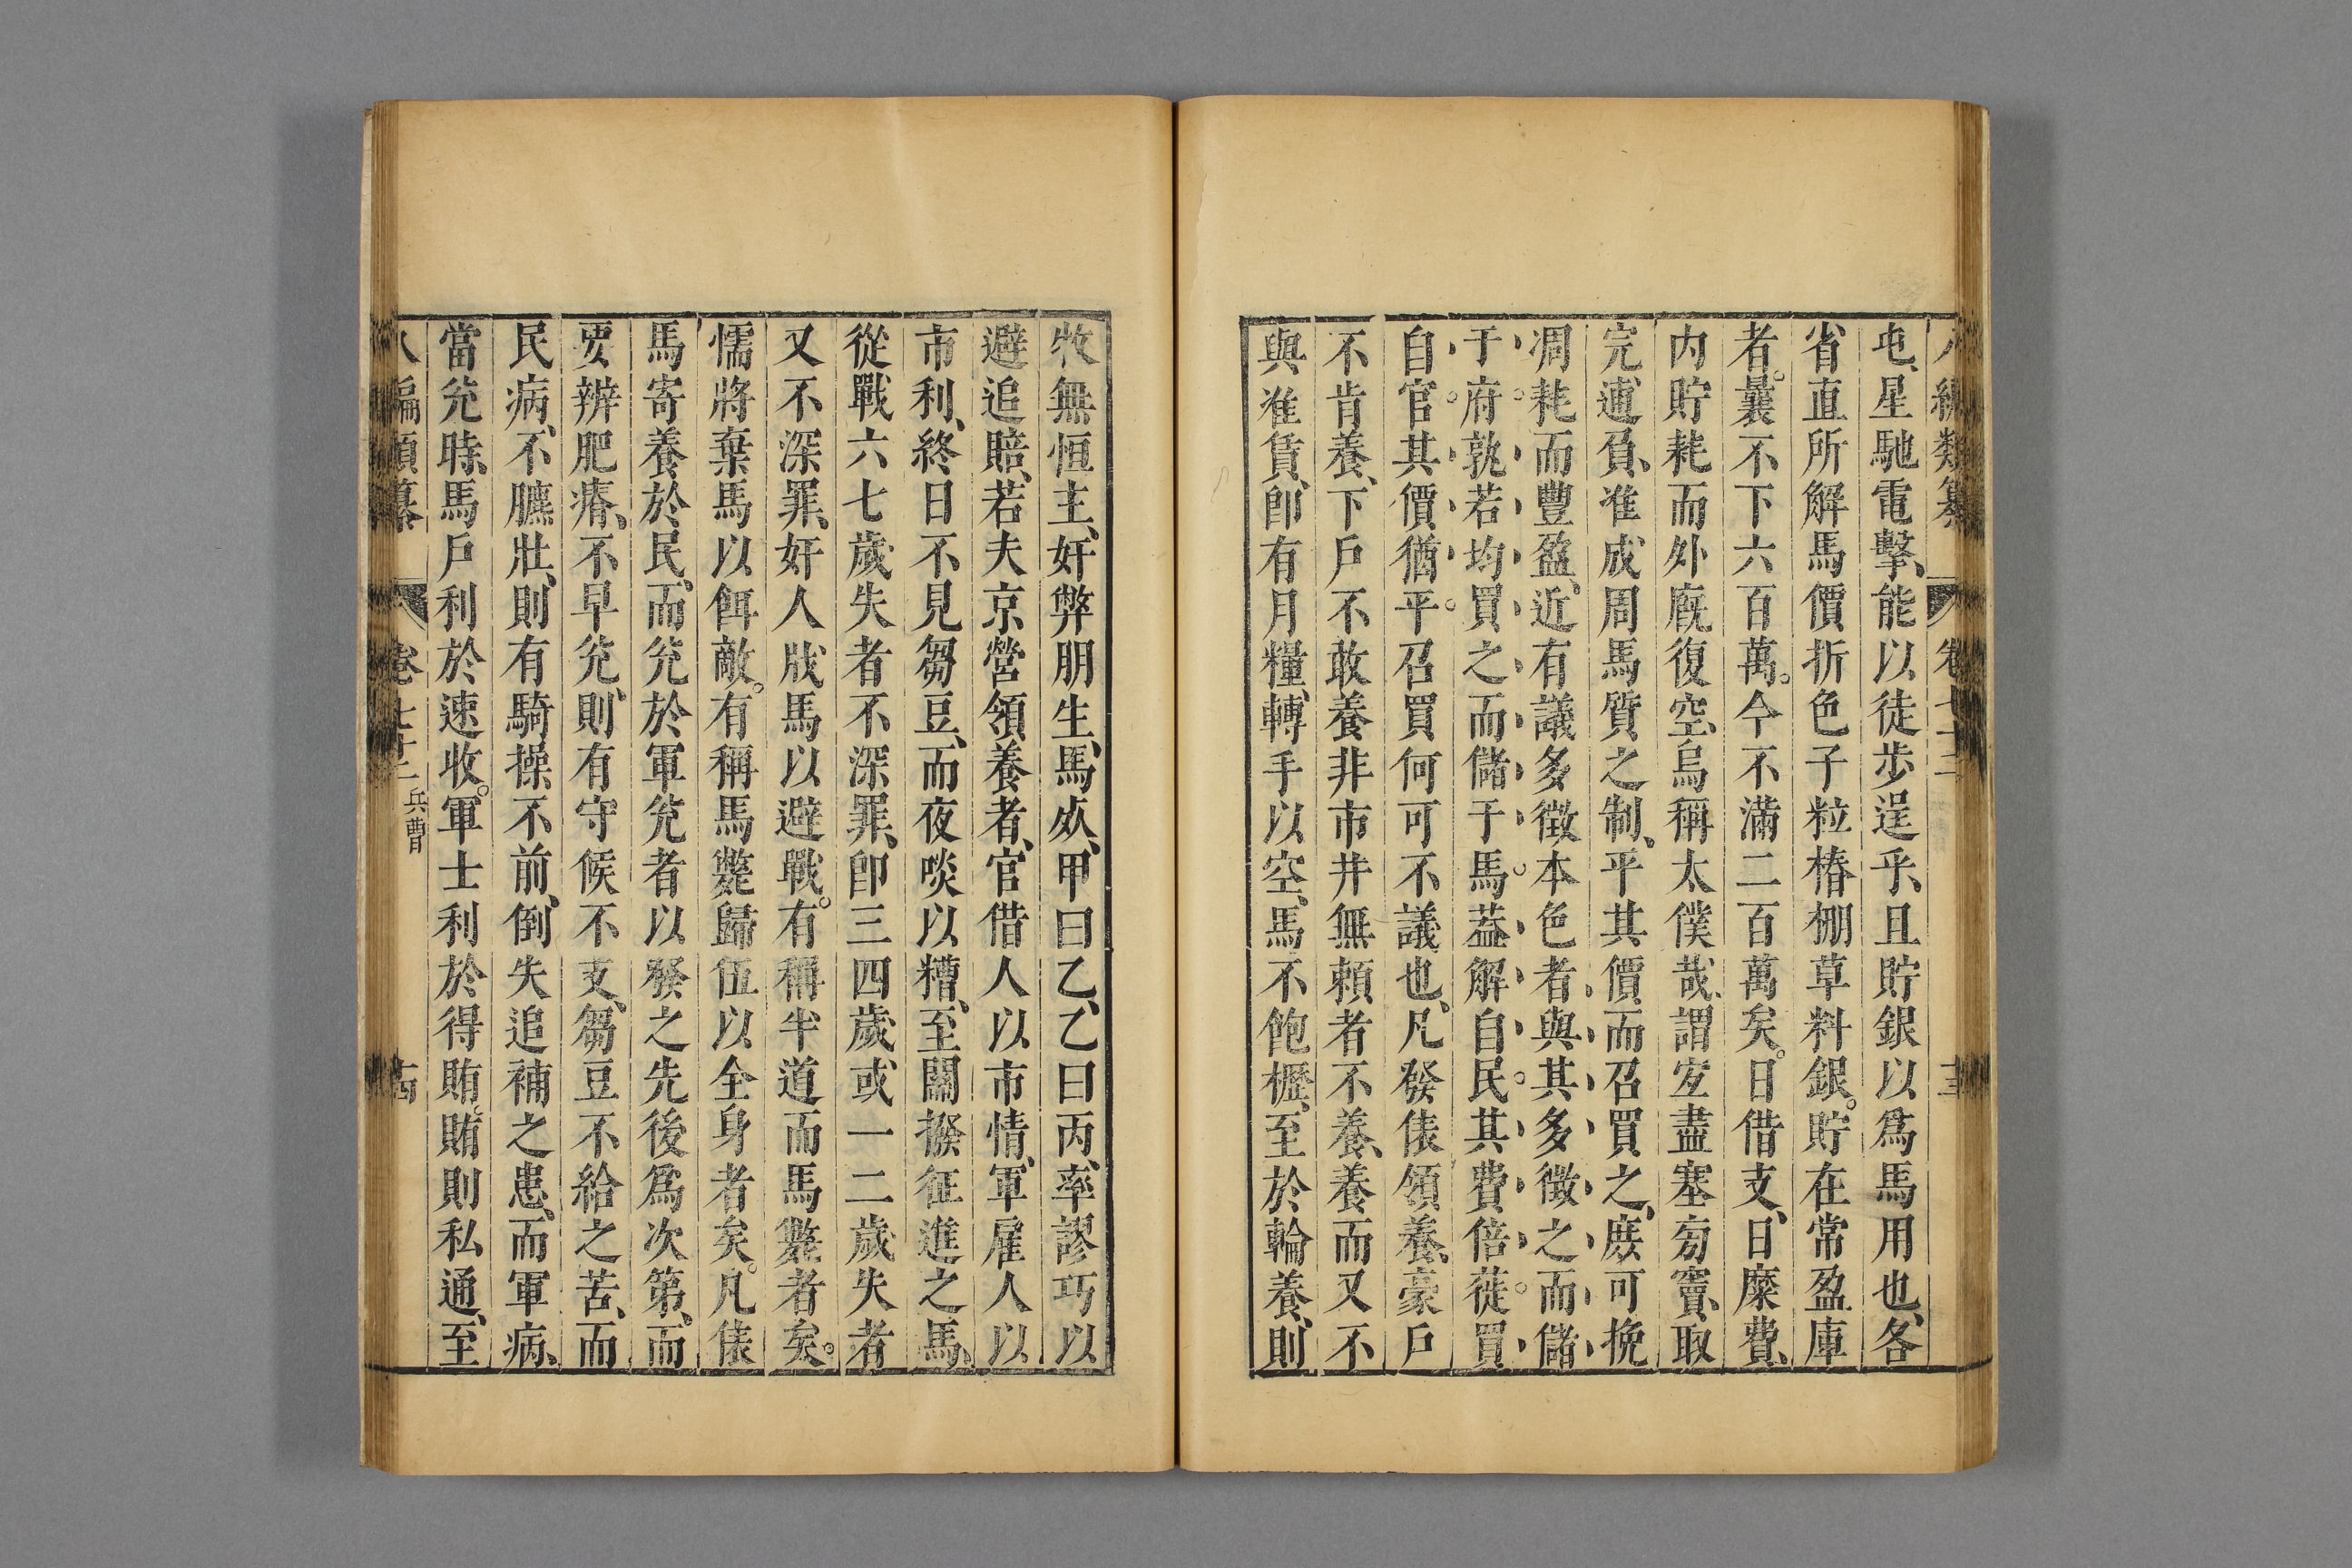 屯、星馳電擊、能以徒步逞乎、且貯銀以爲馬用也、各
省直所解馬價折色子粒樁棚草料銀。貯在常盈庫
者。曩不下六百萬。今不滿二百萬矣。日借支、日糜費、
内貯耗而外廐復空、烏稱太僕哉、謂宐盡塞旁竇、取
完逋負、准成周馬質之制、平其價、而召買之、庶可挽
凋耗而豐盈、近有議多徵本色者、與其多徵之而儲
于府。孰若均買之而儲于馬。葢解自民。其費倍蓰。買
自官。其價猶平。召買何可不議也、凡發俵領養、豪戶
不肯養、下戶不敢養、非市井無頼者不養、養而又不
與准賃、卽有月糧、轉手以空、馬不飽櫪、至於輪養、則
牧無恒主、奸弊朋生、馬㱔、甲曰乙、乙曰丙、率謬巧以
避追賠、若夫京營領養者、官借人以市情、軍雇人以
市利、終日不見芻豆、而夜啖以糟、至關撥征進之馬、
從戰六七歲失者不深罪、卽三四歲或一二歲失者
又不深罪、奸人戕馬以避戰。有稱半道而馬斃者矣。
懦將棄馬以餌敵。有稱馬斃歸伍以全身者矣。凡俵
馬寄養於民、而兊於軍兊者以發之先後爲次第、而
要辨肥瘠、不早兊、則有守候不支、芻豆不給之苦、而
民病、不臕壯、則有騎操不前、倒失追補之患、而軍病、
當兊時、馬戶利於速收。軍士利於得賄。賄則私通、至
八編類纂 卷七十二 兵曹 十四